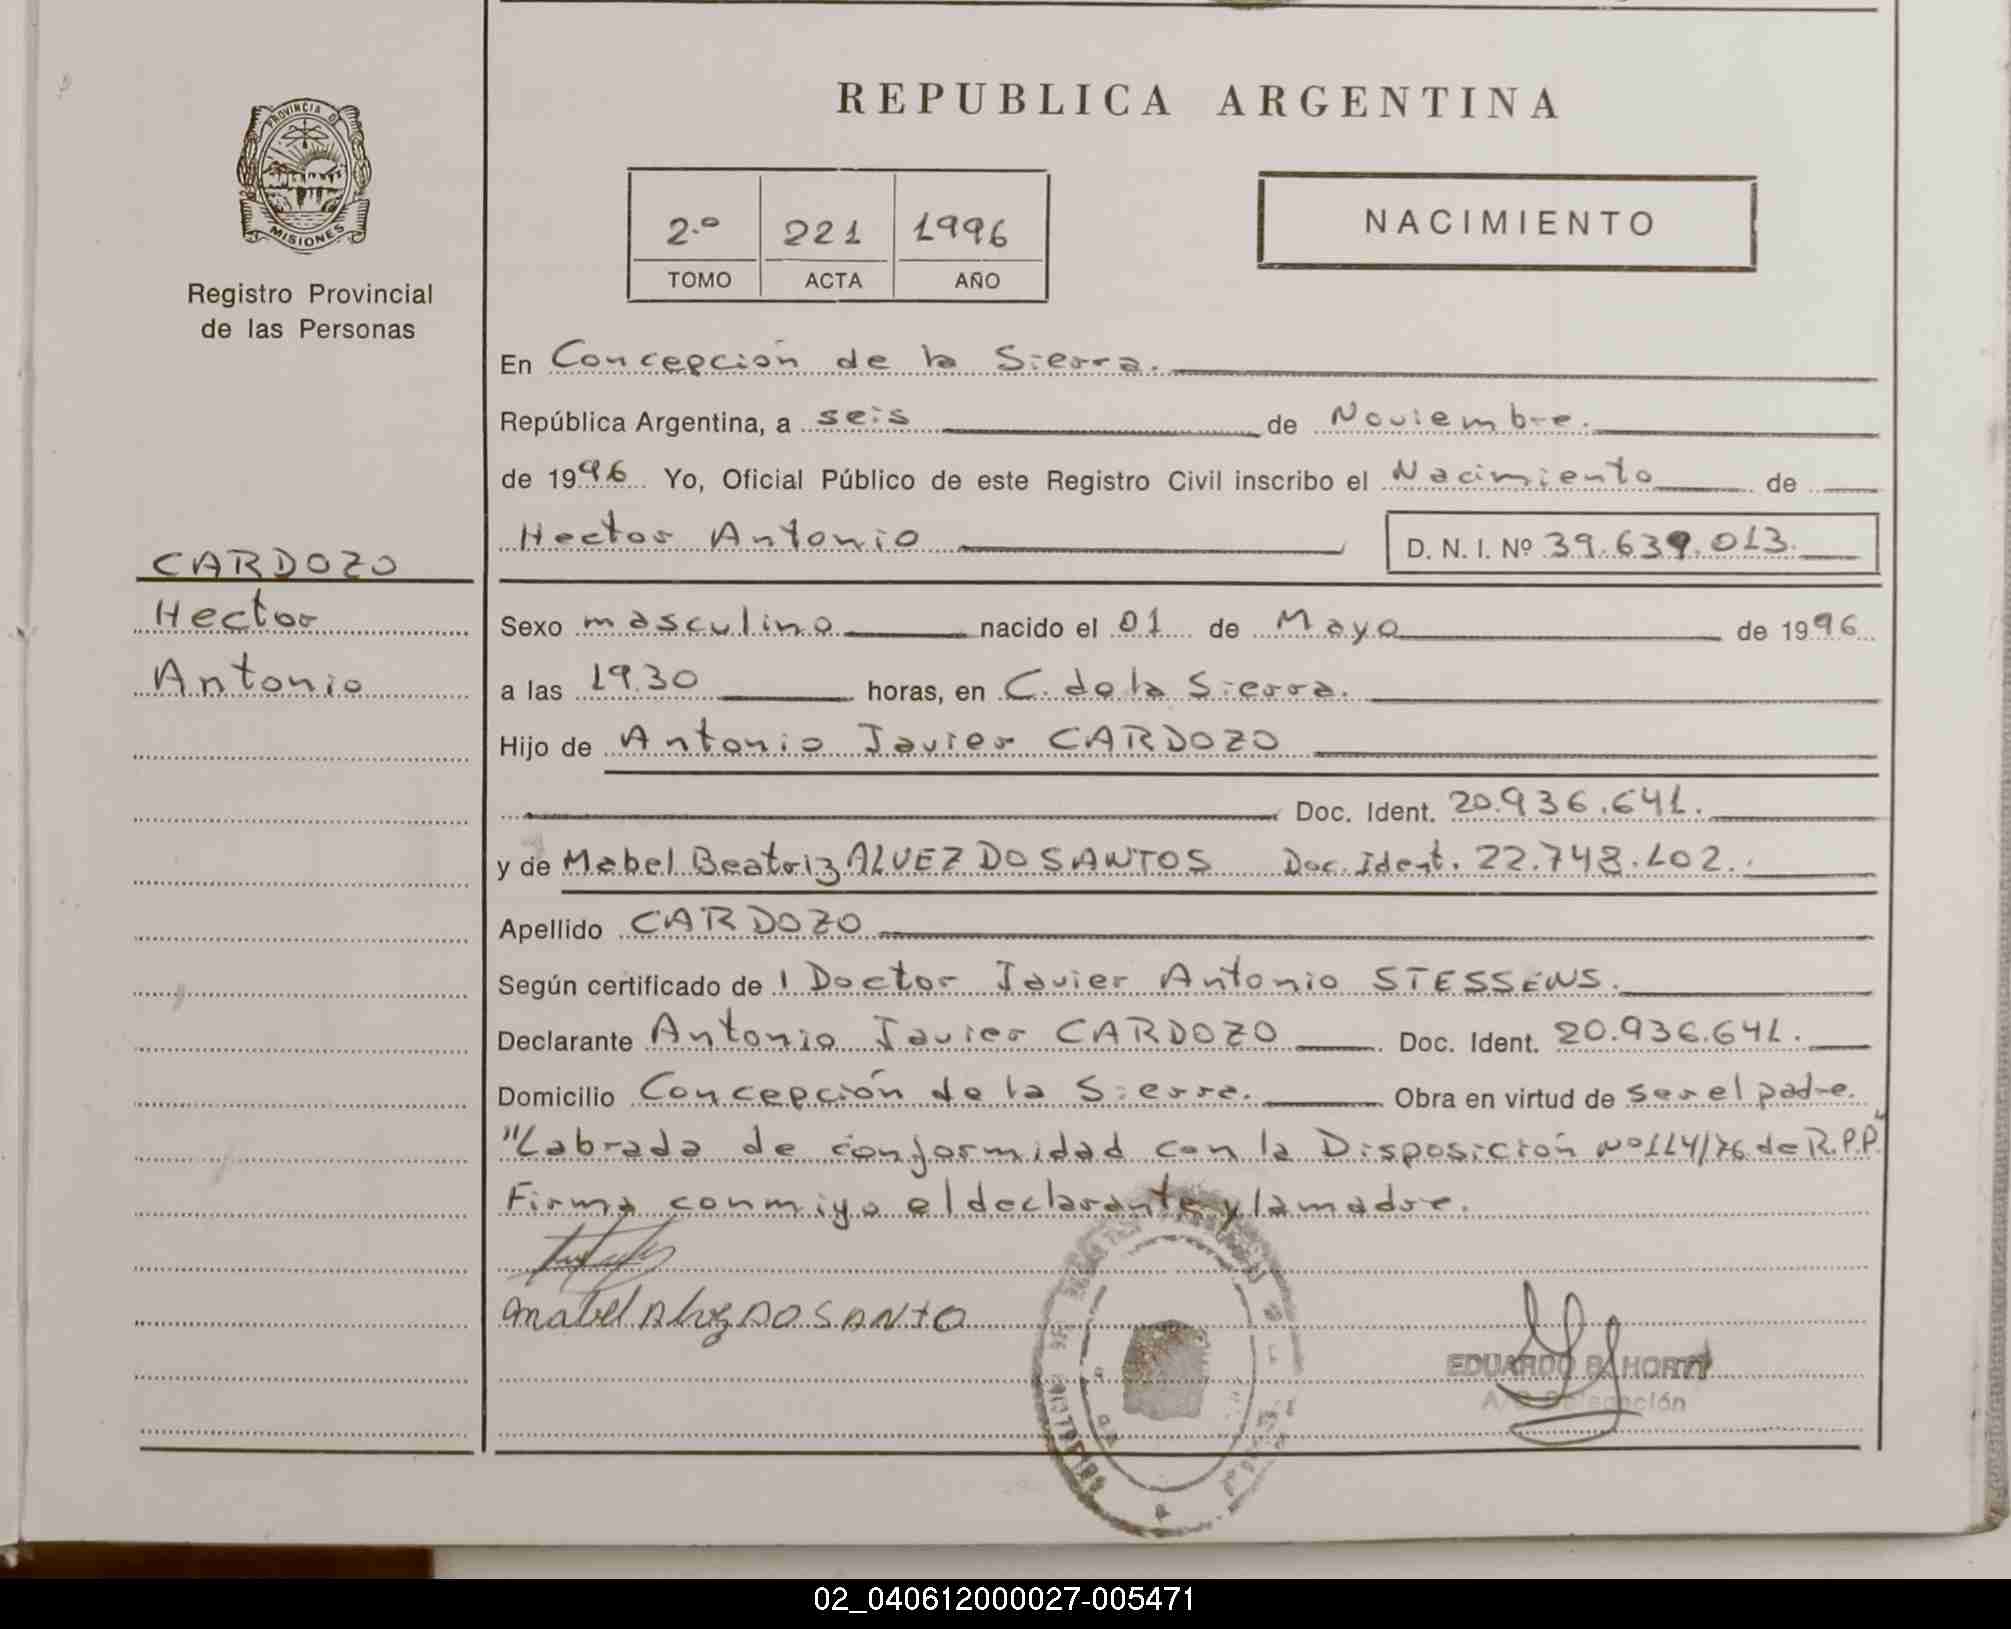 PROVINCIA DE
MISIONES
Registro Provincial
de las Personas
CARDOZO
Hector
Antonio
REPUBLICA ARGENTINA
2.º 221 1996
TOMO ACTA AÑO
NACIMIENTO
En Concepción de la Sierra.
República Argentina, a seis de Noviembre.
de 1996 Yo, Oficial Público de este Registro Civil inscribo el Nacimiento de
Hector Antonio D. N. I. Nº 39.639.013.
Sexo masculino nacido el 01 de Mayo de 1996
a las 19.30 horas, en C. de la Sierra.
Hijo de Antonio Javier CARDOZO
Doc. Ident. 20.936.641.
y de Mabel Beatriz ALVEZ DO SANTOS Doc. Ident. 22.748.102.
Apellido CARDOZO
Según certificado de l Doctor Javier Antonio STESSENS.
Declarante Antonio Javier CARDOZO Doc. Ident. 20.936.641.
Domicilio Concepción de la Sierra. Obra en virtud de ser el padre.
"Labrada de conformidad con la Disposición Nº 114/76 de R.P.P."
Firma conmigo el declarante y la madre.
Mabel Alvez DO SANTO
EDUARDO
02_040612000027-005471